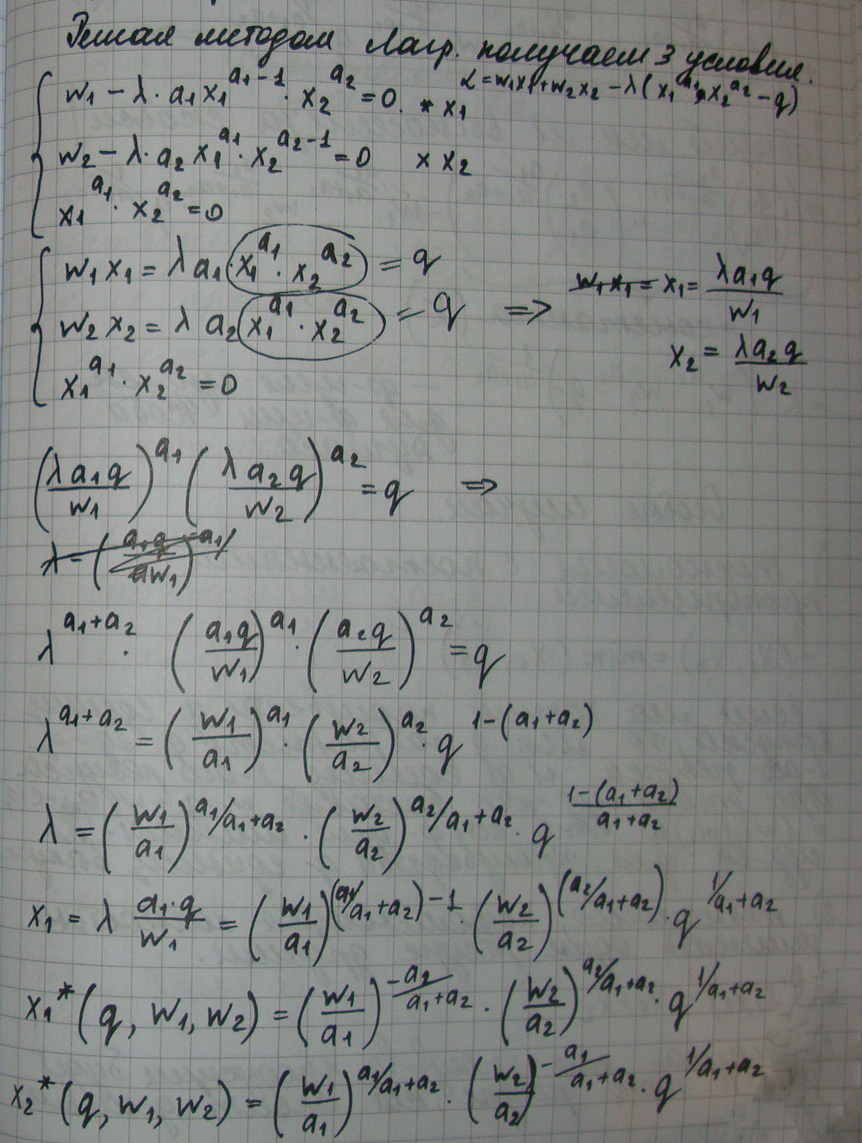 Решая методом Лагр. получаем 3 условия.
L = w1x1 + w2x2 − λ(x1^a1 · x2^a2 − q)
w1 − λ · a1 x1^(a1−1) · x2^a2 = 0. * x1
w2 − λ · a2 x1^a1 · x2^(a2−1) = 0 × x2
x1^a1 · x2^a2 = 0
w1 x1 = λ a1 · x1^a1 · x2^a2 = q
w2 x2 = λ a2 x1^a1 · x2^a2 = q ⇒ x1 = λa1q/w1
x1^a1 · x2^a2 = 0 x2 = λa2q/w2
(λa1q/w1)^a1 (λa2q/w2)^a2 = q ⇒
λ^(a1+a2) · (a1q/w1)^a1 · (a2q/w2)^a2 = q
λ^(a1+a2) = (w1/a1)^a1 · (w2/a2)^a2 · q^(1−(a1+a2))
λ = (w1/a1)^(a1/a1+a2) · (w2/a2)^(a2/a1+a2) · q^((1−(a1+a2))/(a1+a2))
x1 = λ a1·q/w1 = (w1/a1)^((a1/a1+a2)−1) · (w2/a2)^((a2/a1+a2)) · q^(1/a1+a2)
x1*(q, w1, w2) = (w1/a1)^(−a2/(a1+a2)) · (w2/a2)^(a2/a1+a2) · q^(1/a1+a2)
x2*(q, w1, w2) = (w1/a1)^(a1/a1+a2) · (w2/a2)^(−a1/(a1+a2)) · q^(1/a1+a2)